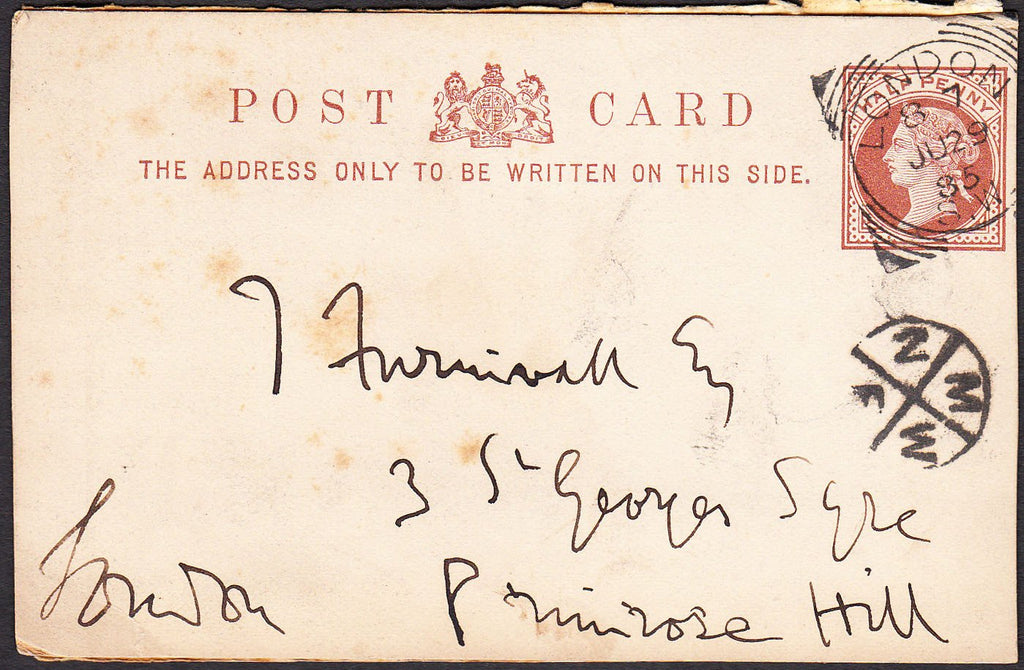 POST CARD
THE ADDRESS ONLY TO BE WRITTEN ON THIS SIDE.
HALF PENNY
LONDON
8 A
JU 29
85
S.W
N
M
W
F Furnivall Esq
3 St Georges Sqre
Primrose Hill
London